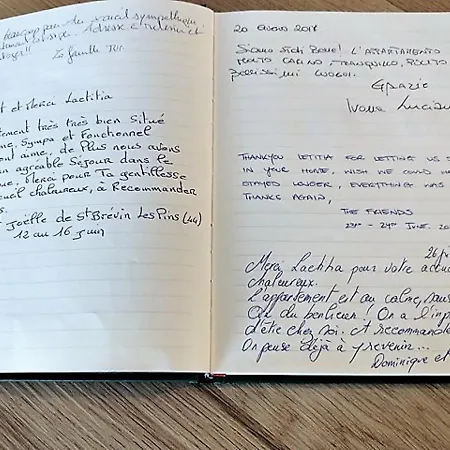 beaucoup pour du accueil sympathique,
Adresse à retenir et
La famille
et Merci Laetitia
très très bien Situé
Sympa et Fonctionnel
aimé, de Plus nous avons
un agréable Séjour dans le
Merci pour Ta gentillesse
chaleureux, à Recommander
Joëlle de St Brevin Les Pins (44)
12 au 16 juin
20 GIUGNO 2018
SIAMO STATI BENE! L'APPARTAMENTO
MOLTO CARINO, TRANQUILLO, PULITO
BELLISSIMI LUOGHI.
GRAZIE
IVANA LUCIANO
THANKYOU LETITIA FOR LETTING US S
IN YOUR HOME, WISH WE COULD HA
STAYED LONGER, EVERYTHING WAS
THANKS AGAIN,
THE FRIENDS
23RD - 24TH JUNE. 20
26
Merci Laetitia pour votre accue
chaleureux.
L'appartement est au calme,
Que du bonheur! On a l'imp
d'être chez soi. A recommande
On pense déjà à y revenir...
Dominique et